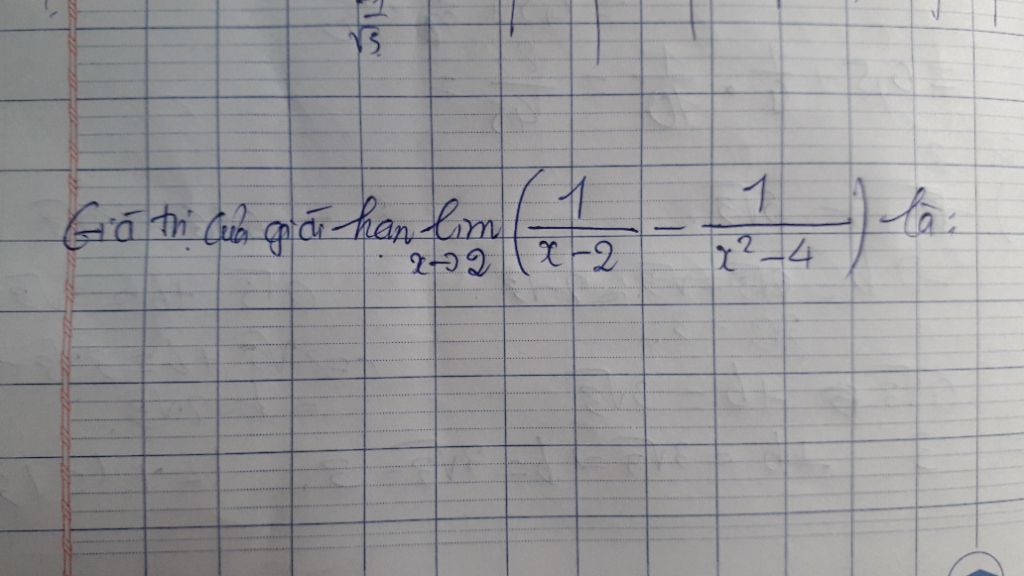 √5
Giá trị của giới hạn lim x→2 (1/(x-2) - 1/(x²-4)) là: